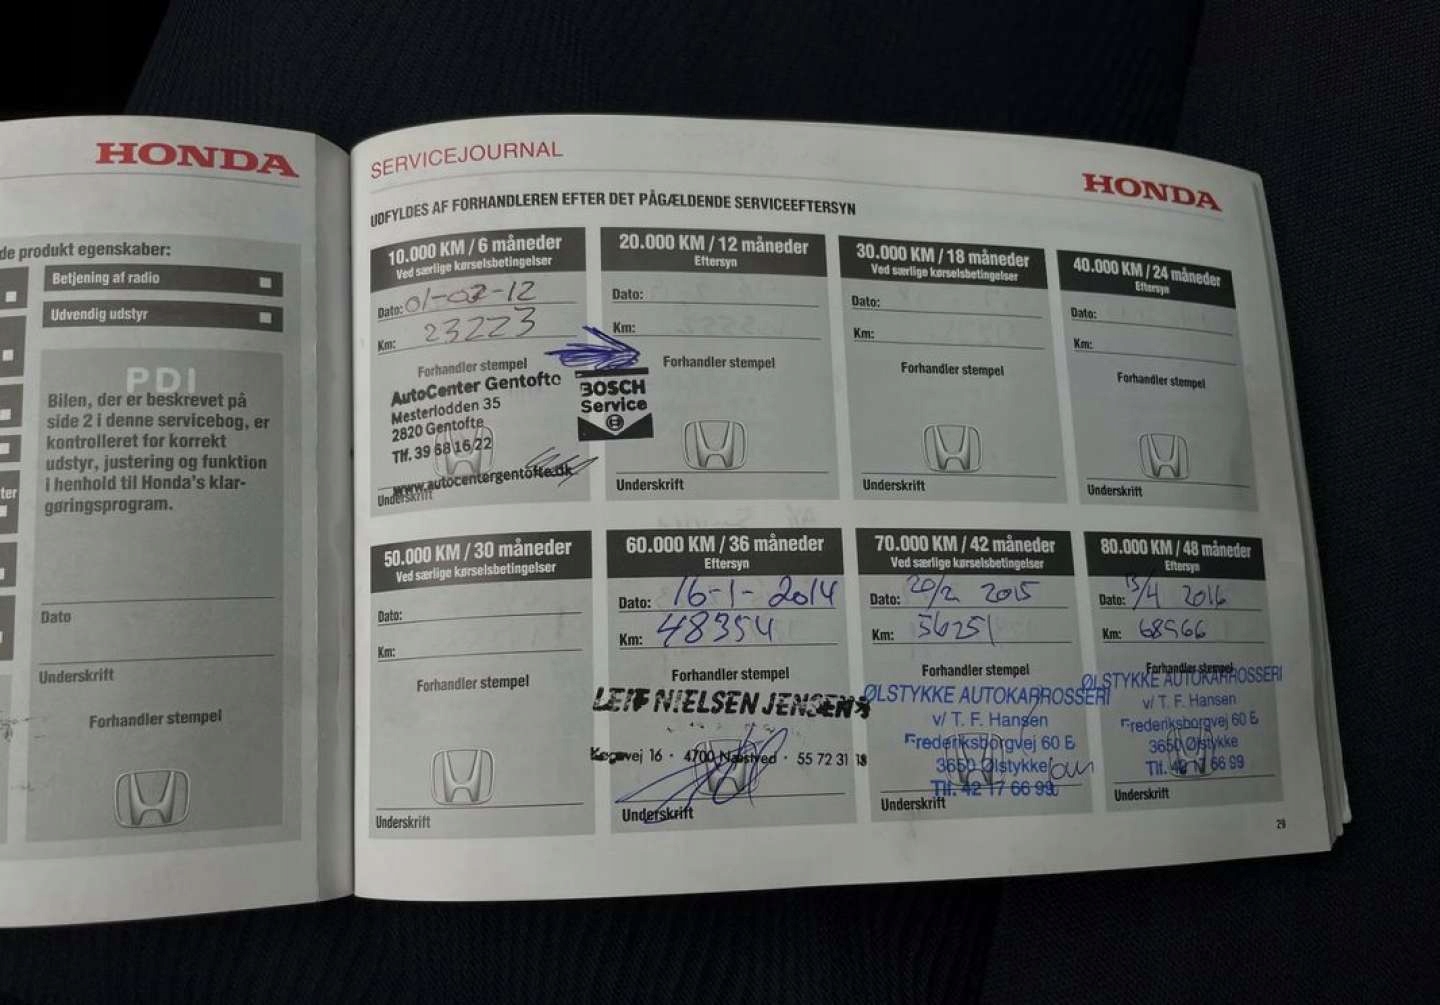 HONDA
de produkt egenskaber:
Betjening af radio
Udvendig udstyr
PDI
Bilen, der er beskrevet på
side 2 i denne servicebog, er
kontrolleret for korrekt
udstyr, justering og funktion
i henhold til Honda's klar-
gøringsprogram.
ter
Dato
Underskrift
Forhandler stempel
SERVICEJOURNAL
HONDA
UDFYLDES AF FORHANDLEREN EFTER DET PÅGÆLDENDE SERVICEEFTERSYN
10.000 KM / 6 måneder
Ved særlige kørselsbetingelser
Dato: 01-02-12
Km: 23223
Forhandler stempel
AutoCenter Gentofte
Mesterlodden 35
2820 Gentofte
Tlf. 39 68 16 22
www.autocentergentofte.dk
Underskrift
BOSCH
Service
20.000 KM / 12 måneder
Eftersyn
Dato:
Km:
Forhandler stempel
Underskrift
30.000 KM / 18 måneder
Ved særlige kørselsbetingelser
Dato:
Km:
Forhandler stempel
Underskrift
40.000 KM / 24 måneder
Eftersyn
Dato:
Km:
Forhandler stempel
Underskrift
50.000 KM / 30 måneder
Ved særlige kørselsbetingelser
Dato:
Km:
Forhandler stempel
Underskrift
60.000 KM / 36 måneder
Eftersyn
Dato: 16-1-2014
Km: 48354
Forhandler stempel
LEIF NIELSEN JENSEN
16 · 4700 Næstved · 55 72 31 18
Underskrift
70.000 KM / 42 måneder
Ved særlige kørselsbetingelser
Dato: 20/2 2015
Km: 56251
Forhandler stempel
ØLSTYKKE AUTOKARROSSERI
v/ T. F. Hansen
Frederiksborgvej 60 E
3650 Ølstykke
Tlf. 42 17 66 99
Underskrift
80.000 KM / 48 måneder
Eftersyn
Dato: 13/4 2016
Km: 68966
Forhandler stempel
ØLSTYKKE AUTOKARROSSERI
v/ T. F. Hansen
Frederiksborgvej 60 E
3650 Ølstykke
Tlf. 42 17 66 99
Underskrift
29